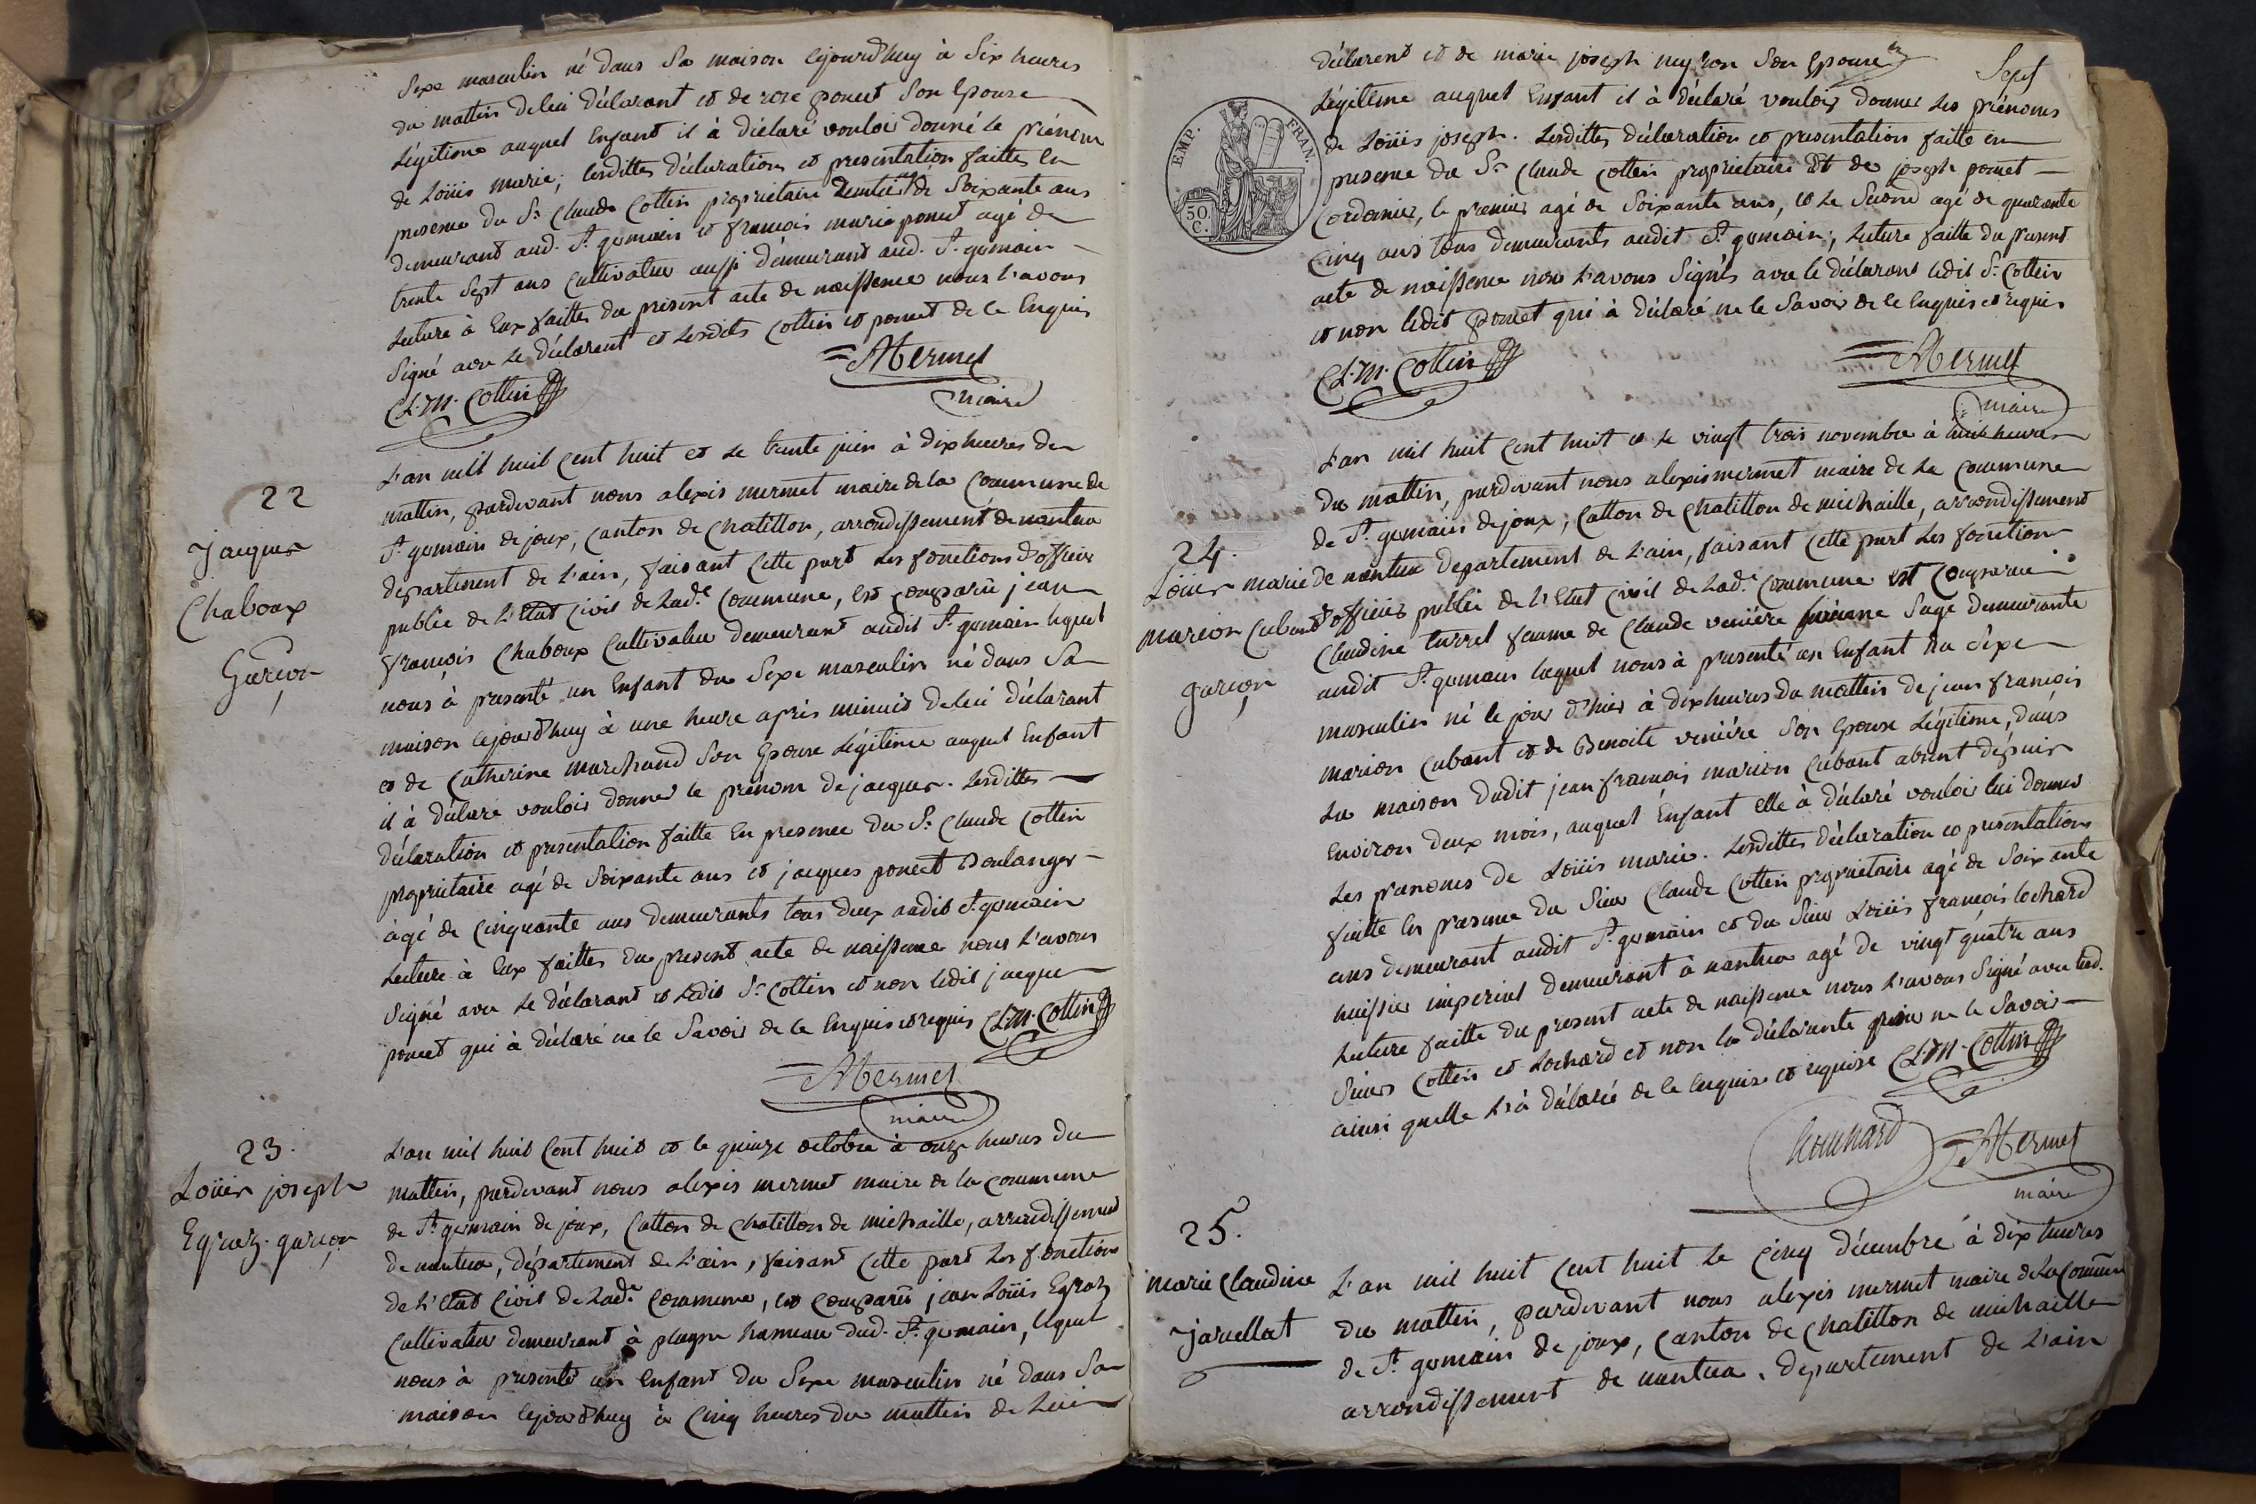 Sexe masculin né dans Sa maison cejourd'huy à Six heures
du mattin de lui déclarant et de rose poncet Son Epouse
Légitime auquel Enfant il à déclaré vouloir donné le prénom
de Loüis marie; lesdittes déclaration et presentation faittes en
presence du Sr. Claude Cottin propriétaire Rentier de Soixante ans
demeurant aud. St. germain et françois marie poncet agé de
trente Sept ans cultivateur aussi demeurant aud. St. germain
Lecture à Eux faittes du présent acte de naissence nous l'avons
Signé avec le déclarant et Lesdits Cottin et poncet de ce Enquis
Cl. M. Cottin
AMermet
maire
22
jacques
Chaboux
Garçon
L'an mil huit Cent huit et le trente juin à dix heures du
mattin, pardevant nous alexis mermet maire de la Commune de
St. germain de joux, Canton de Chatillon, arrondissement de nantua
departement de L'ain, faisant Cette part Les fonctions d'officier
public de L'Etat Civil de Lad.e Commune, est comparu jean
françois Chaboux Cultivateur demeurant audit St. germain lequel
nous à presenté un Enfant du Sexe masculin né dans Sa
maison cejourd'huy à une heure après minuit de lui déclarant
et de Catherine marchand Son Epouse Légitime auquel Enfant
il à déclaré vouloir donner le prénom de jacques. Lesdittes
déclaration et presentation faitte En presence du Sr. Claude Cottin
propriétaire agé de Soixante ans et jacques poncet Boulanger
âgé de Cinquante ans demeurants tous deux audit St. germain
Lecture à Eux faittes du present acte de naissance nous L'avons
Signé avec le déclarant et Ledit Sr. Cottin et non ledit jacque
poncet qui à déclaré ne le Savoir de ce Enquis et requis Cl. M. Cottin
AMermet
maire
23.
Loüis joseph
Egraz. garçon
L'an mil huit Cent huit et le quinze octobre à onze heures du
mattin, pardevant nous alexis mermet maire de la Commune
de St. germain de joux, Catton de Chatillon de michaille, arrondissement
de nantua, département de L'ain, faisant Cette part Les fonctions
de L'Etat Civil de Lad.e Commune, est comparu jean Loüis Egraz
Cultivateur demeurant à plagne hameau dud. St. germain, lequel
nous à presenté un Enfant du Sexe masculin né dans Sa
maison cejourd'huy à Cinq heures du mattin de Lui
Sept
déclarent et de marie joseph Son Epouse
Légitime auquel Enfant il à déclaré vouloir donner Les prénoms
de Loüis joseph. Lesdittes déclaration et presentation faitte en
EMP. FRAN.
50. C.
presence du Sr. Claude Cottin propriétaire Et de joseph poncet
Cordonier, le premier agé de Soixante ans, et Le Second agé de quarante
Cinq ans tous demeurants audit St. germain; Lecture faitte du present
acte de naissence nous L'avons Signés avec le déclarant ledit Sr. Cottin
et non ledit poncet qui à déclaré ne le Savoir de ce Enquis et requis
Cl. M. Cottin
AMermet
maire
24.
Loüis marie
marion Cubant
garçon
L'an mil huit Cent huit et Le vingt trois novembre à huit heures
du mattin, pardevant nous alexis mermet maire de La Commune
de St. germain de joux, Catton de Chatillon de michaille, arrondissement
de nantua departement de L'ain, faisant Cette part Les fonctions
d'officier public de L'Etat Civil de Lad.e Commune est Comparue
Claudine turrel femme de Claude Sage demeurante
audit St. germain laquel nous à presenté un Enfant du Sexe
masculin né le jour d'hier à dix heures du mattin de jean françois
marion Cubant et de Benoite Son Epouse Légitime, dans
La maison dudit jean françois marion Cubant absent depuis
Environ deux mois, auquel Enfant elle à déclaré vouloir lui donner
Les prenoms de Loüis marie. Lesdittes déclaration et presentation
faitte En presence du Sieur Claude Cottin propriétaire agé de Soixante
ans demeurant audit St. germain et du Sieur Loüis françois lochard
huissier imperial demeurant à nantua agé de vingt quatre ans
Lecture faitte du present acte de naissence nous L'avons Signé avec lesd.
Sieurs Cottin et Lochard et non la déclarante pour ne le Savoir
ainsi quelle L'à déclaré de ce Enquise et requise Cl. M. Cottin
AMermet
maire
25.
marie Claudine
javellat
L'an mil huit Cent huit Le Cinq décembre à dix heures
du mattin, pardevant nous alexis mermet maire de La Commune
de St. germain de joux, Canton de Chatillon de michaille
arrondissement de nantua, departement de L'ain